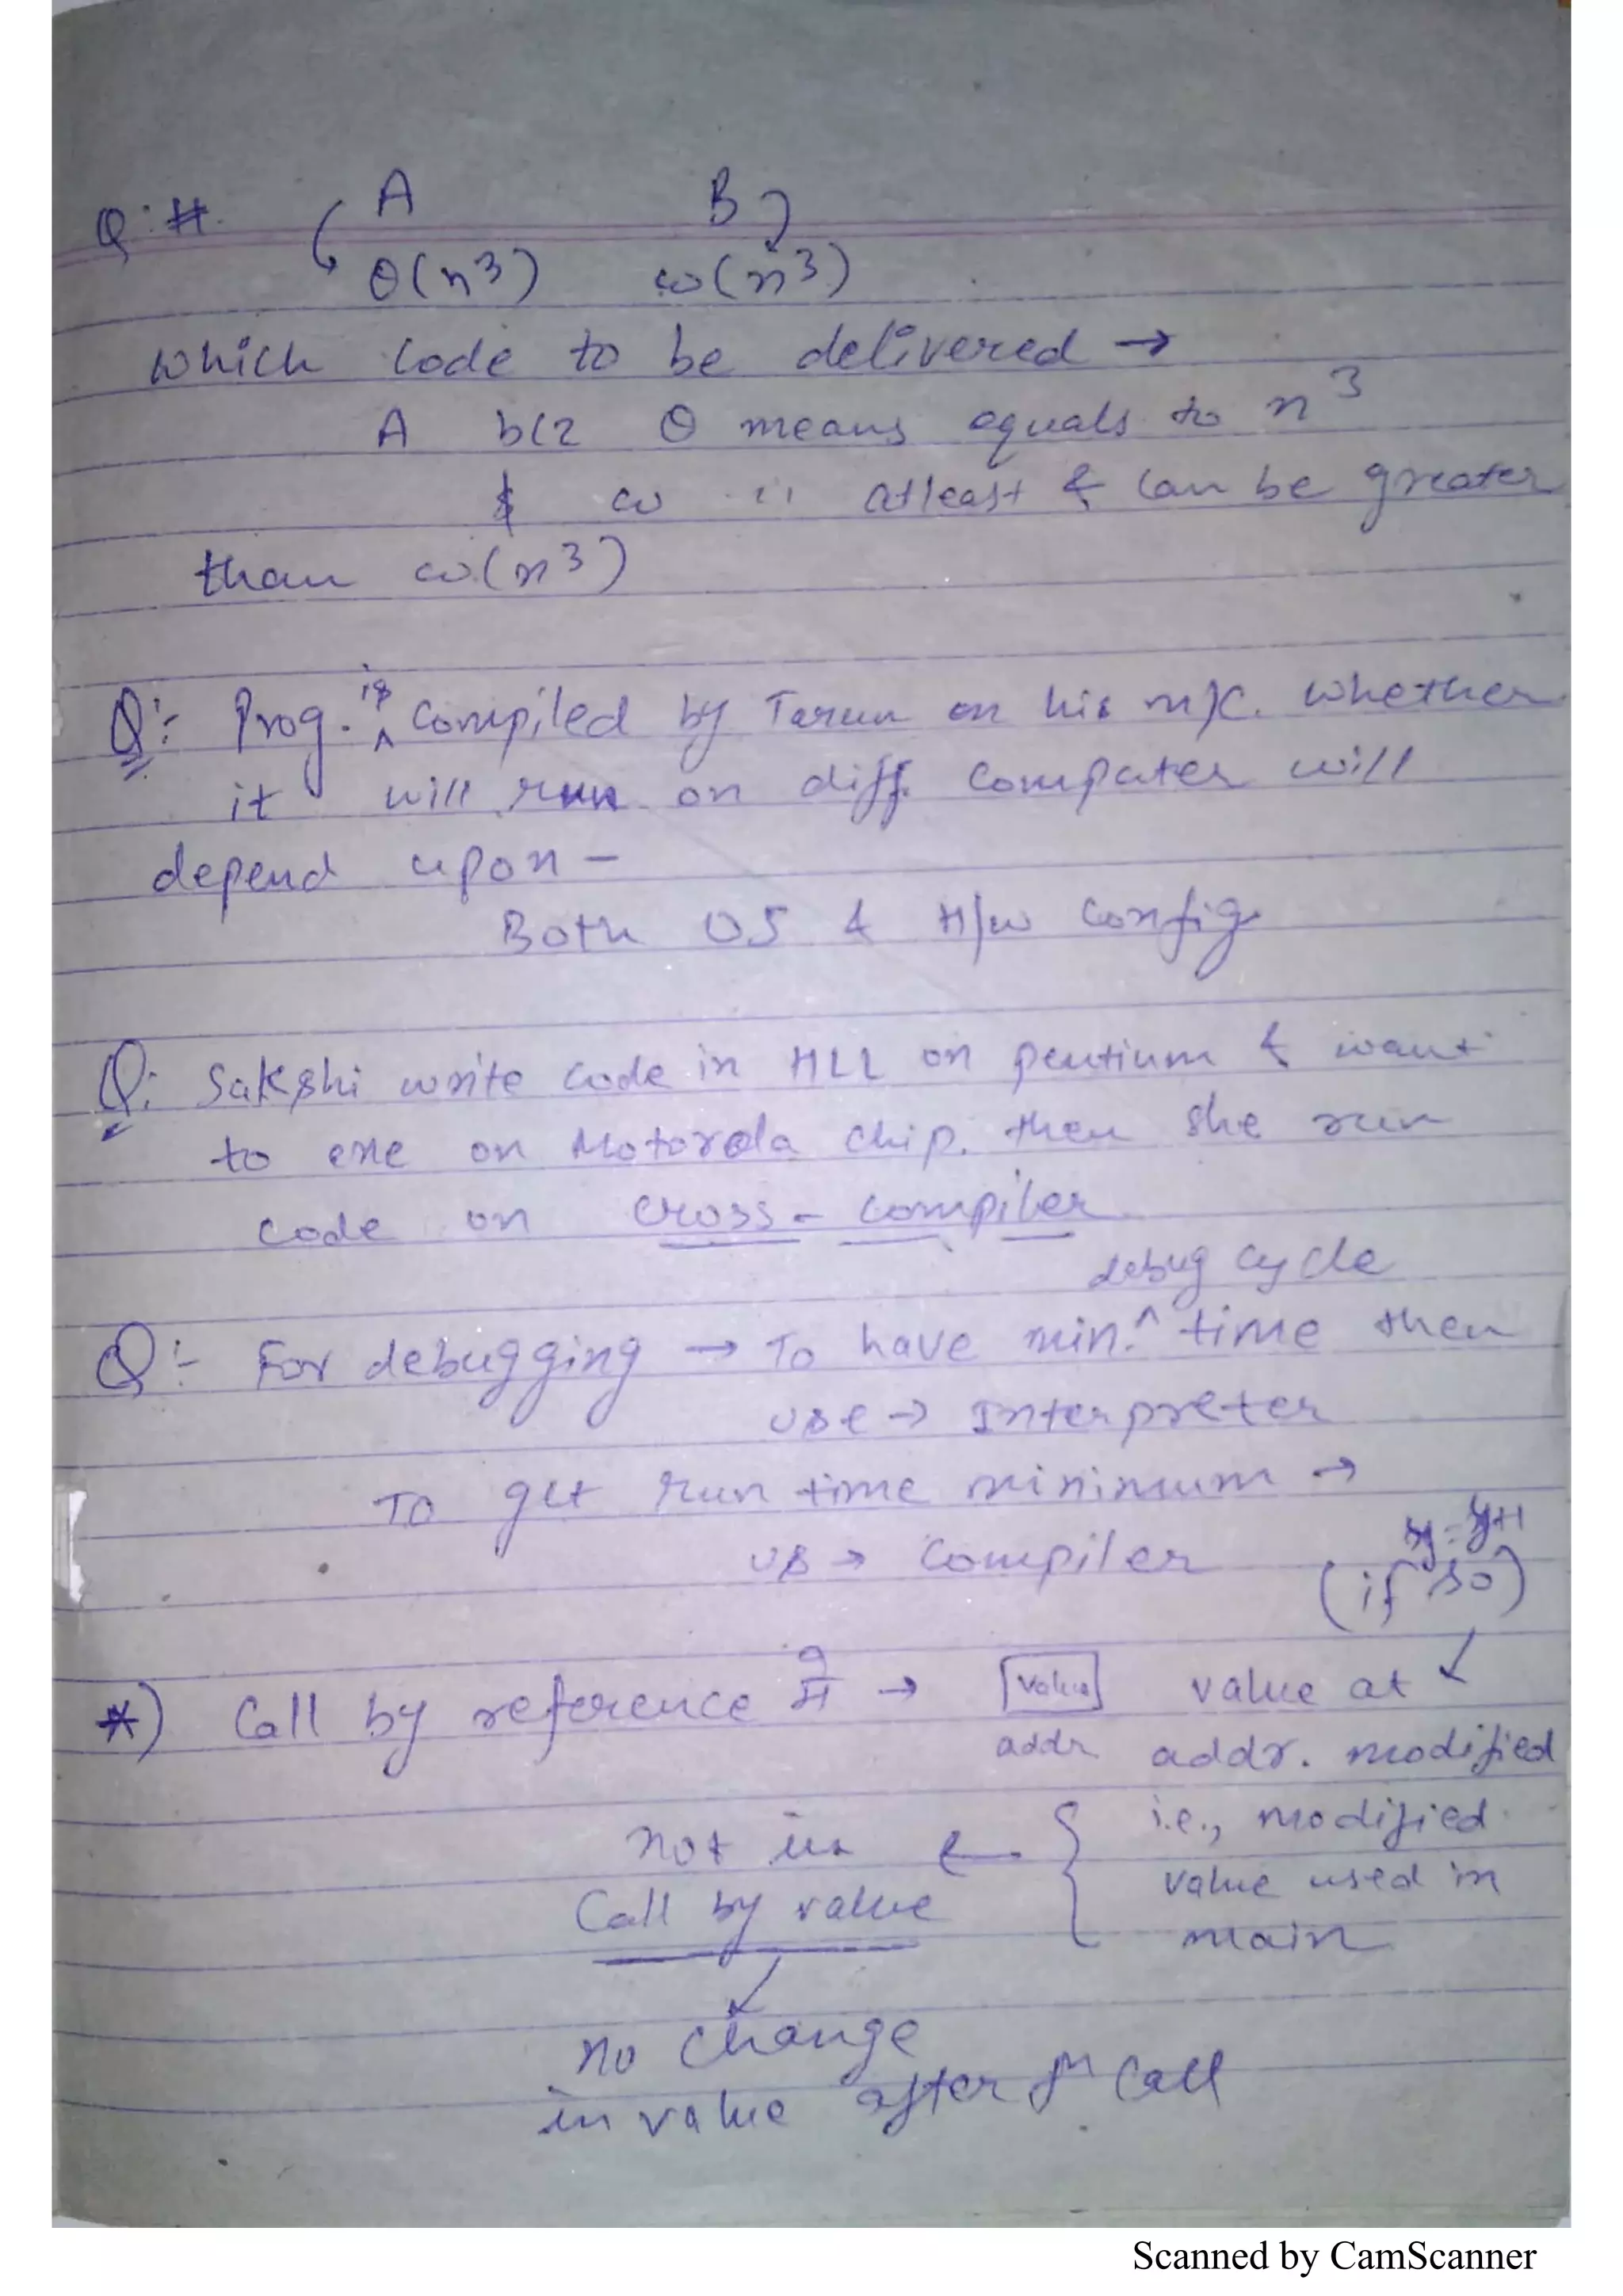 Q:#. A B
θ(n³) ω(n³)
which code to be delivered →
A bcz θ means equals to n³
& ω '' atleast & can be greater
than ω(n³)
Q:- Prog. is compiled by Tarun on his m/c. whether
it will run on diff. computer will
depend upon –
Both OS & H/w config
Q: Sakshi write code in HLL on pentium & want
to exe on Motorola chip. then she run
code on cross-compiler
debug cycle
Q:- For debugging → To have min. ^ time then
use → Interpreter
To get run time minimum →
us → Compiler
y=y+1
(if so)
*) Call by reference में → value value at
addr addr. modified
i.e., modified
not in ← value used in
Call by value main
no change
in value after fn call
Scanned by CamScanner